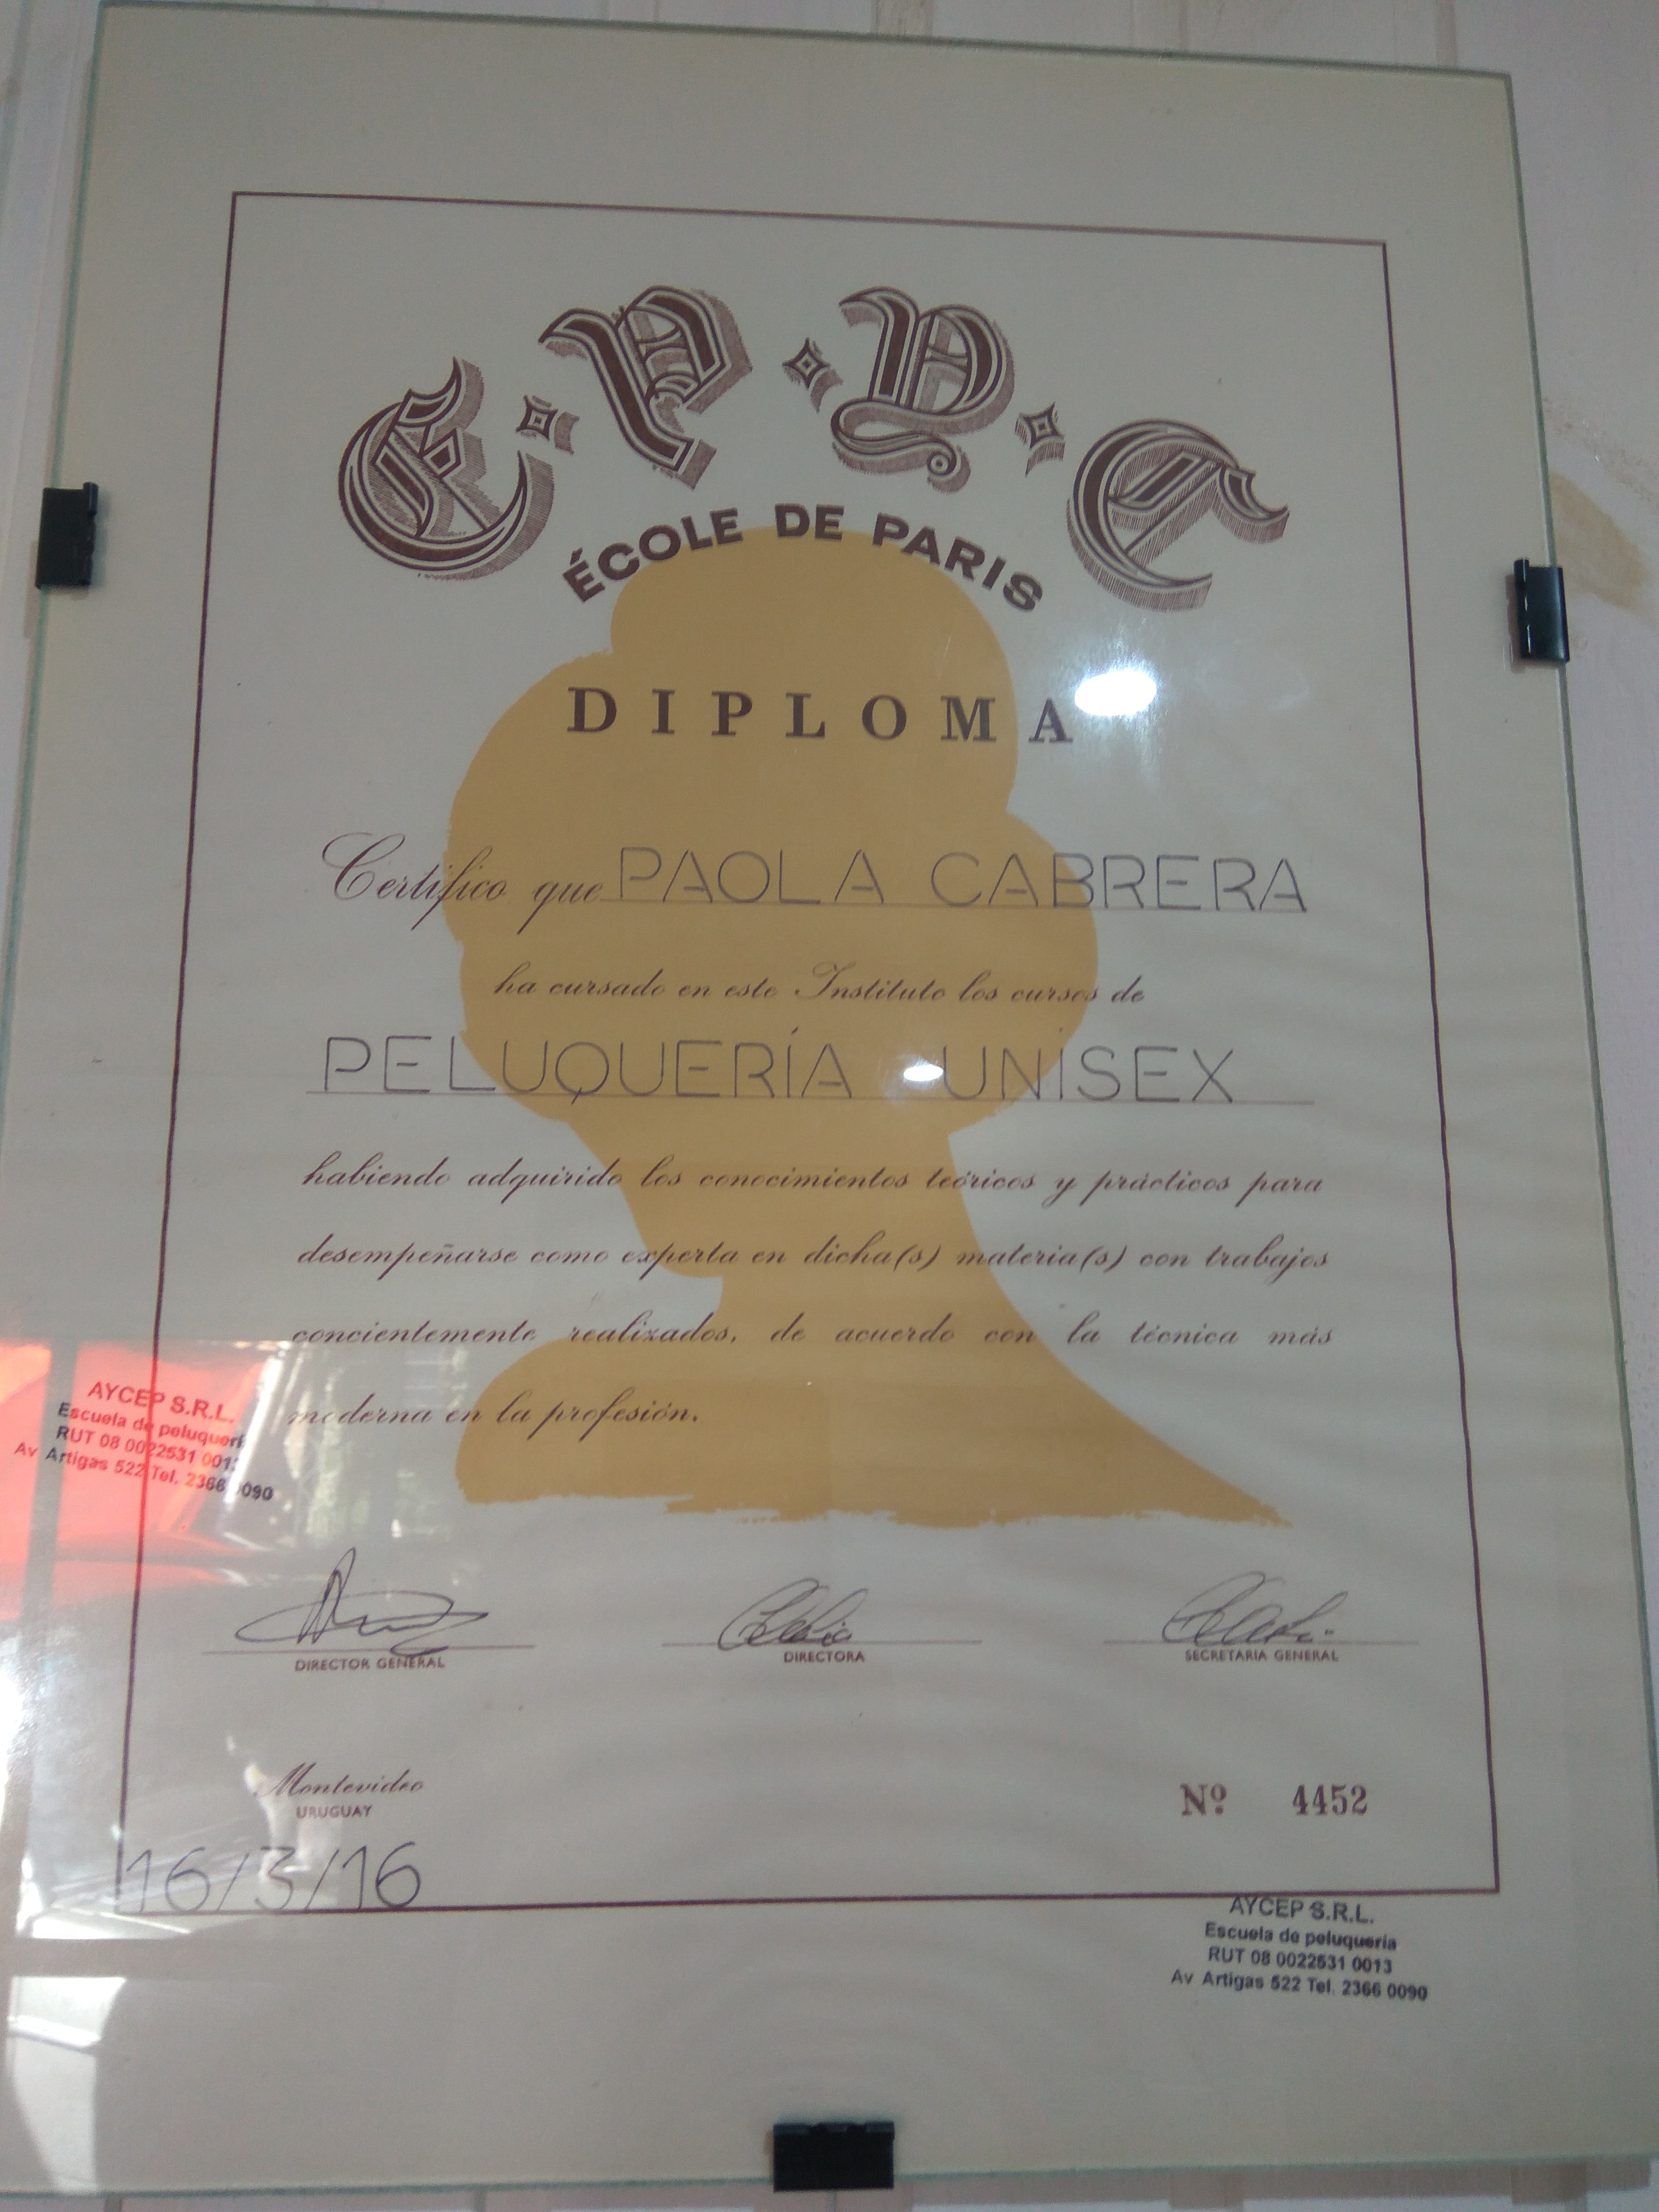 E·P·P·C
ÉCOLE DE PARIS
DIPLOMA
Certifico que PAOLA CABRERA
ha cursado en este Instituto los cursos de
PELUQUERÍA UNISEX
habiendo adquirido los conocimientos teóricos y prácticos para
desempeñarse como experta en dicha(s) materia(s) con trabajos
concientemente realizados, de acuerdo con la técnica más
moderna en la profesión.
AYCEP S.R.L.
Escuela de peluquerí
RUT 08 0022531 001
Av Artigas 522 Tel. 2366 0090
DIRECTOR GENERAL
DIRECTORA
SECRETARIA GENERAL
Montevideo
URUGUAY
Nº 4452
16/3/16
AYCEP S.R.L.
Escuela de peluquería
RUT 08 0022531 0013
Av Artigas 522 Tel. 2366 0090